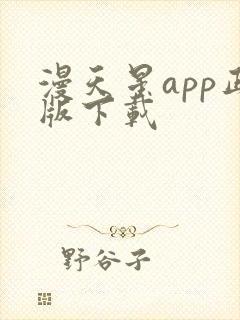 漫天星app正
版下载
野谷子